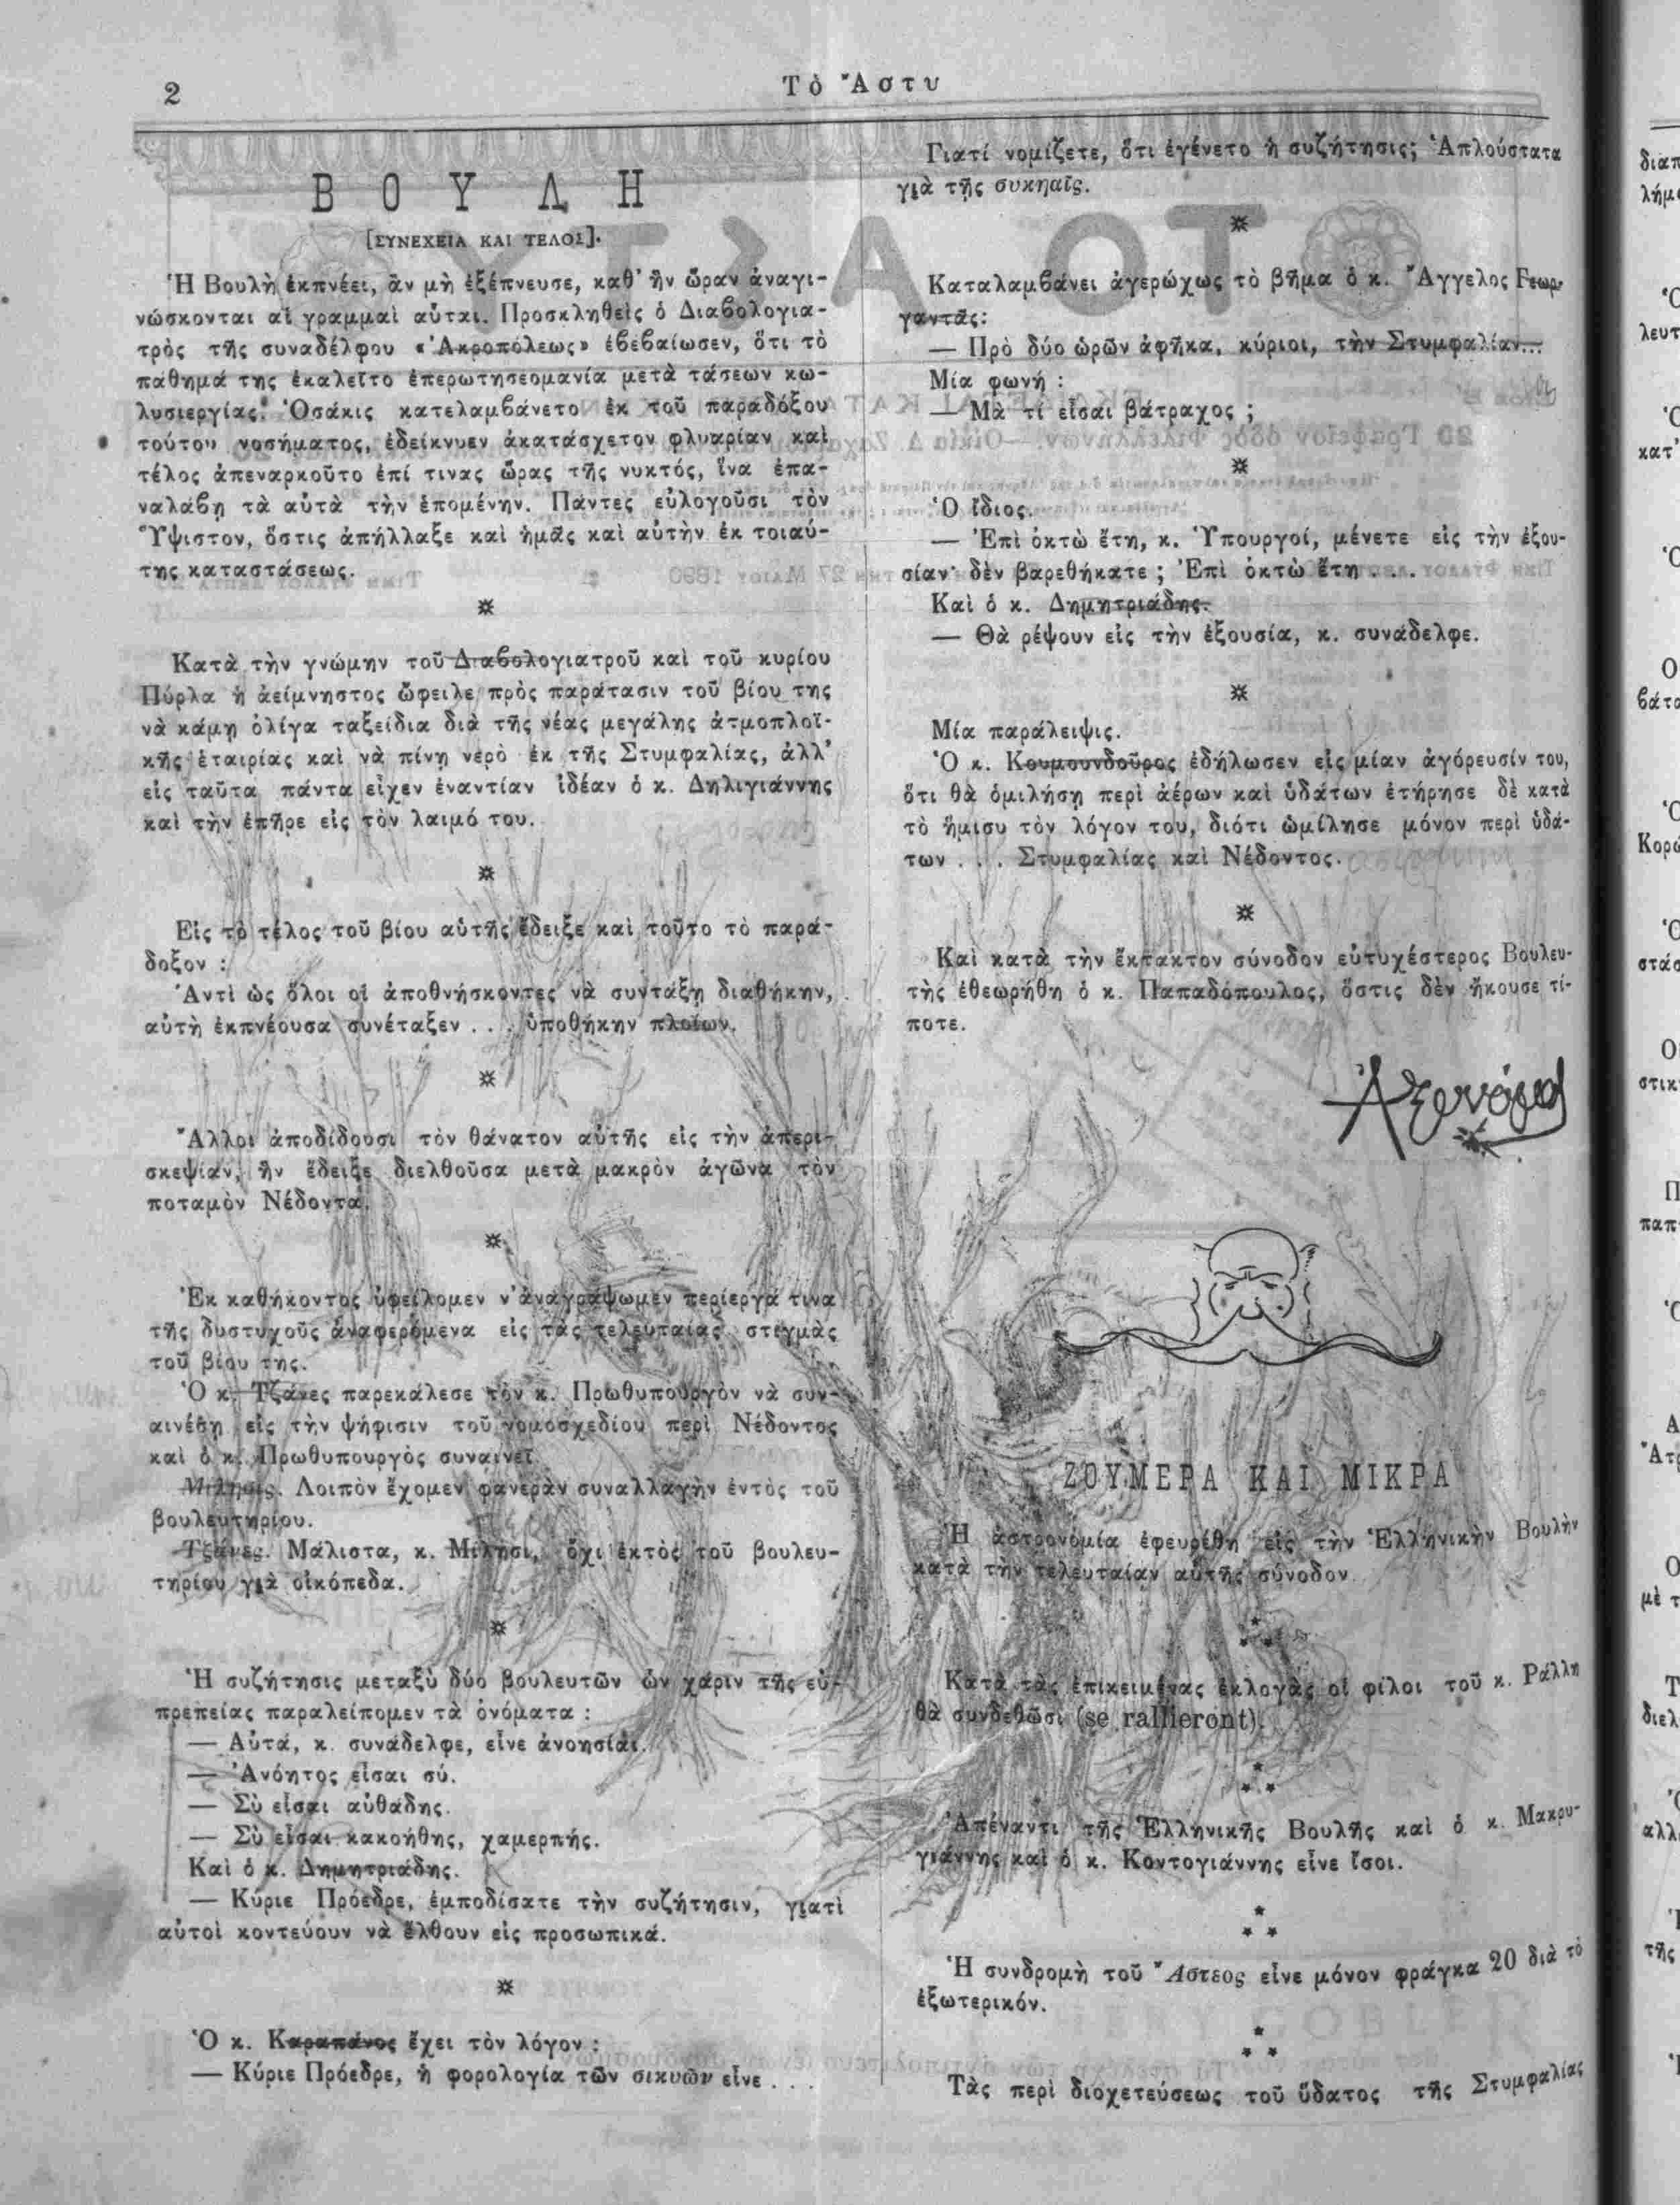 2
Τὸ Ἄστυ
ΒΟΥΛΗ
[ΣΥΝΕΧΕΙΑ ΚΑΙ ΤΕΛΟΣ].
Ἡ Βουλὴ ἐκπνέει, ἂν μὴ ἐξέπνευσε, καθ' ἣν ὥραν ἀναγι-
νώσκονται αἱ γραμμαὶ αὗται. Προσκληθεὶς ὁ Διαβολογια-
τρὸς τῆς συναδέλφου «Ἀκροπόλεως» ἐβεβαίωσεν, ὅτι τὸ
πάθημά της ἐκαλεῖτο ἐπερωτησεομανία μετὰ τάσεων κω-
λυσιεργίας. Ὁσάκις κατελαμβάνετο ἐκ τοῦ παραδόξου
τούτου νοσήματος, ἐδείκνυεν ἀκατάσχετον φλυαρίαν καὶ
τέλος ἀπεναρκοῦτο ἐπί τινας ὥρας τῆς νυκτός, ἵνα ἐπα-
ναλάβῃ τὰ αὐτὰ τὴν ἑπομένην. Πάντες εὐλογοῦσι τὸν
Ὕψιστον, ὅστις ἀπήλλαξε καὶ ἡμᾶς καὶ αὐτὴν ἐκ τοιαύ-
της καταστάσεως.
Κατὰ τὴν γνώμην τοῦ Διαβολογιατροῦ καὶ τοῦ κυρίου
Πύρλα ἡ ἀείμνηστος ὤφειλε πρὸς παράτασιν τοῦ βίου της
νὰ κάμῃ ὀλίγα ταξείδια διὰ τῆς νέας μεγάλης ἀτμοπλοϊ-
κῆς ἑταιρίας καὶ νὰ πίνῃ νερὸ ἐκ τῆς Στυμφαλίας, ἀλλ'
εἰς ταῦτα πάντα εἶχεν ἐναντίαν ἰδέαν ὁ κ. Δηλιγιάννης
καὶ τὴν ἐπῆρε εἰς τὸν λαιμό του.
Εἰς τὸ τέλος τοῦ βίου αὐτῆς ἔδειξε καὶ τοῦτο τὸ παρά-
δοξον :
Ἀντὶ ὡς ὅλοι οἱ ἀποθνήσκοντες νὰ συντάξῃ διαθήκην,
αὐτὴ ἐκπνέουσα συνέταξεν . . . ὑποθήκην πλοίων.
Ἄλλοι ἀποδίδουσι τὸν θάνατον αὐτῆς εἰς τὴν ἀπερι-
σκεψίαν, ἣν ἔδειξε διελθοῦσα μετὰ μακρὸν ἀγῶνα τὸν
ποταμὸν Νέδοντα.
Ἐκ καθήκοντος ὀφείλομεν ν' ἀναγράψωμεν περίεργά τινα
τῆς δυστυχοῦς ἀναφερόμενα εἰς τὰς τελευταίας στιγμὰς
τοῦ βίου της.
Ὁ κ. Τζάνες παρεκάλεσε τὸν κ. Πρωθυπουργὸν νὰ συν-
αινέσῃ εἰς τὴν ψήφισιν τοῦ νομοσχεδίου περὶ Νέδοντος
καὶ ὁ κ. Πρωθυπουργὸς συναινεῖ.
Μιλήσις. Λοιπὸν ἔχομεν φανερὰν συναλλαγὴν ἐντὸς τοῦ
βουλευτηρίου.
Τζάνες. Μάλιστα, κ. Μιλήσι, ὄχι ἐκτὸς τοῦ βουλευ-
τηρίου γιὰ οἰκόπεδα.
Ἡ συζήτησις μεταξὺ δύο βουλευτῶν ὧν χάριν τῆς εὐ-
πρεπείας παραλείπομεν τὰ ὀνόματα :
— Αὐτά, κ. συνάδελφε, εἶνε ἀνοησίαι.
— Ἀνόητος εἶσαι σύ.
— Σὺ εἶσαι αὐθάδης.
— Σὺ εἶσαι κακοήθης, χαμερπής.
Καὶ ὁ κ. Δημητριάδης.
— Κύριε Πρόεδρε, ἐμποδίσατε τὴν συζήτησιν, γιατὶ
αὐτοὶ κοντεύουν νὰ ἔλθουν εἰς προσωπικά.
Ὁ κ. Καραπάνος ἔχει τὸν λόγον :
— Κύριε Πρόεδρε, ἡ φορολογία τῶν σικυῶν εἶνε . . .
Γιατί νομίζετε, ὅτι ἐγένετο ἡ συζήτησις; Ἁπλούστατα
γιὰ τῆς συκηαῖς.
Καταλαμβάνει ἀγερώχως τὸ βῆμα ὁ κ. Ἄγγελος Γεωρ-
γαντᾶς:
— Πρὸ δύο ὡρῶν ἀφῆκα, κύριοι, τὴν Στυμφαλίαν...
Μία φωνή :
— Μὰ τί εἶσαι βάτραχος ;
Ὁ ἴδιος.
— Ἐπὶ ὀκτὼ ἔτη, κ. Ὑπουργοί, μένετε εἰς τὴν ἐξου-
σίαν· δὲν βαρεθήκατε ; Ἐπὶ ὀκτὼ ἔτη . . .
Καὶ ὁ κ. Δημητριάδης.
— Θὰ ρέψουν εἰς τὴν ἐξουσία, κ. συνάδελφε.
Μία παράλειψις.
Ὁ κ. Κουμουνδοῦρος ἐδήλωσεν εἰς μίαν ἀγόρευσίν του,
ὅτι θὰ ὁμιλήσῃ περὶ ἀέρων καὶ ὑδάτων ἐτήρησε δὲ κατὰ
τὸ ἥμισυ τὸν λόγον του, διότι ὡμίλησε μόνον περὶ ὑδά-
των . . . Στυμφαλίας καὶ Νέδοντος.
Καὶ κατὰ τὴν ἔκτακτον σύνοδον εὐτυχέστερος Βουλευ-
τὴς ἐθεωρήθη ὁ κ. Παπαδόπουλος, ὅστις δὲν ἤκουσε τί-
ποτε.
ΖΟΥΜΕΡΑ ΚΑΙ ΜΙΚΡΑ
Ἡ ἀστρονομία ἐφευρέθη εἰς τὴν Ἑλληνικὴν Βουλὴν
κατὰ τὴν τελευταίαν αὐτῆς σύνοδον.
Κατὰ τὰς ἐπικειμένας ἐκλογὰς οἱ φίλοι τοῦ κ. Ράλλη
θὰ συνδεθῶσι (se rallieront).
Ἀπέναντι τῆς Ἑλληνικῆς Βουλῆς καὶ ὁ κ. Μακρυ-
γιάννης καὶ ὁ κ. Κοντογιάννης εἶνε ἴσοι.
Ἡ συνδρομὴ τοῦ Ἄστεος εἶνε μόνον φράγκα 20 διὰ τὸ
ἐξωτερικόν.
Τὰς περὶ διοχετεύσεως τοῦ ὕδατος τῆς Στυμφαλίας